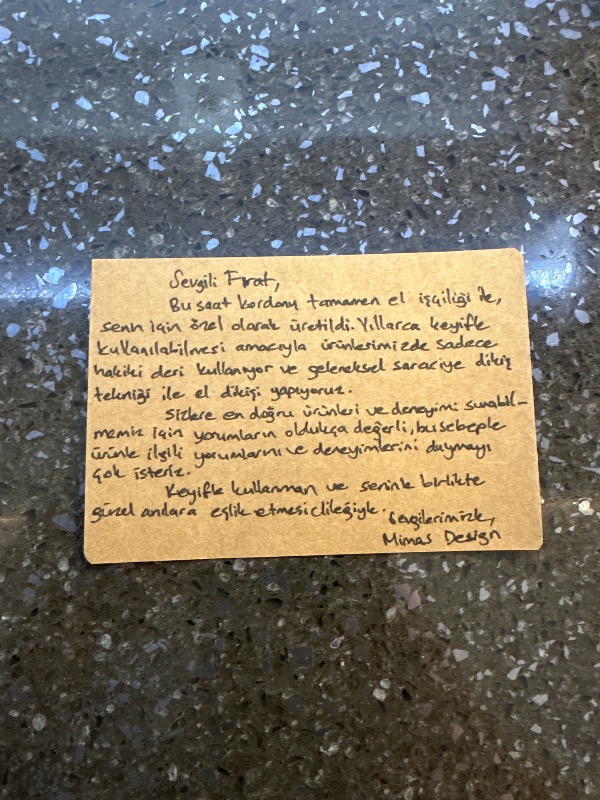 Sevgili Fırat,
Bu saat kordonu tamamen el işçiliği ile,
senin için özel olarak üretildi. Yıllarca keyifle
kullanılabilmesi amacıyla ürünlerimizde sadece
hakiki deri kullanıyor ve geleneksel saraciye dikiş
tekniği ile el dikişi yapıyoruz.
Sizlere en doğru ürünleri ve deneyimi sunabil-
memiz için yorumların oldukça değerli, bu sebeple
ürünle ilgili yorumlarını ve deneyimlerini duymayı
çok isteriz.
Keyifle kullanman ve seninle birlikte
güzel anılara eşlik etmesi dileğiyle.
Sevgilerimizle,
Mimas Design